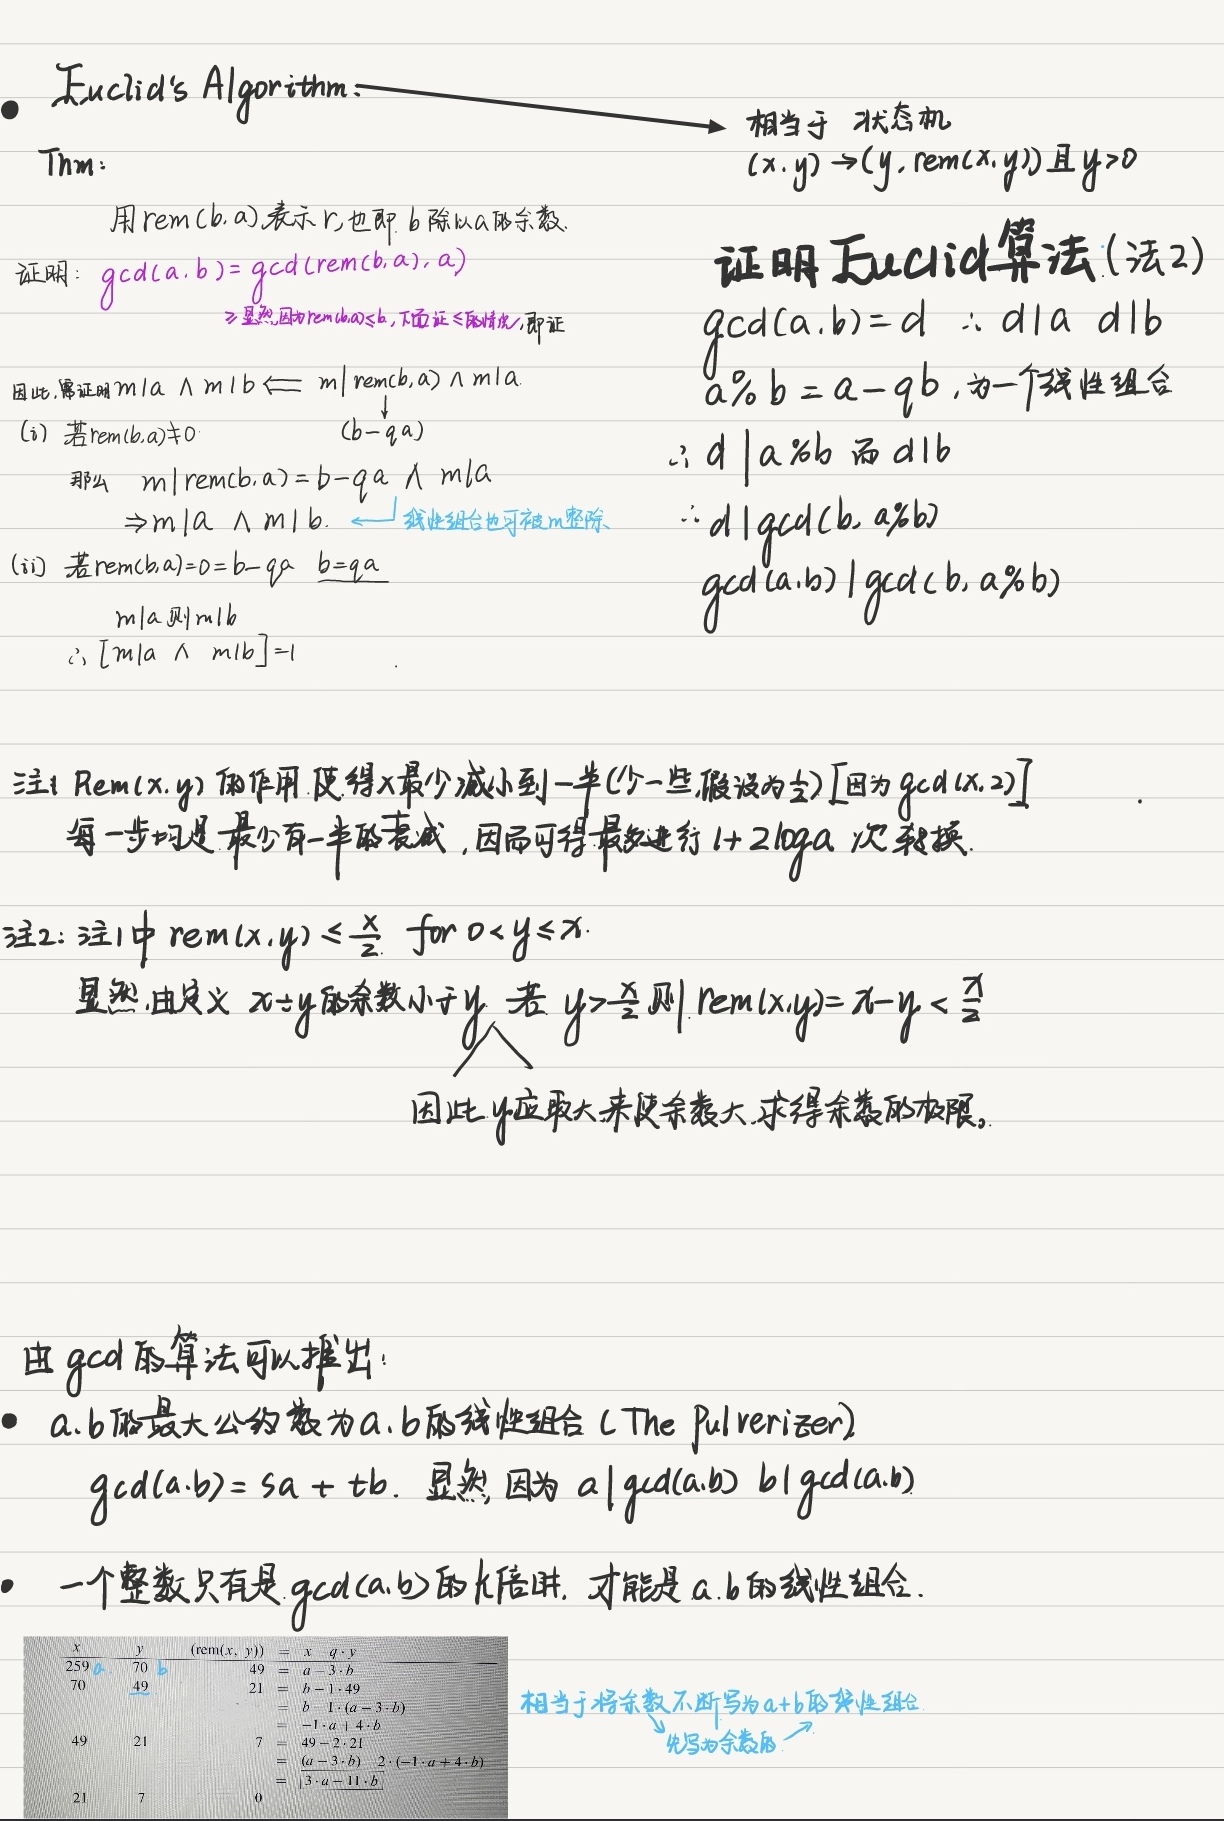 Euclid's Algorithm:
Thm:
用rem(b,a)表示r,也即b除以a的余数.
证明: gcd(a,b)=gcd(rem(b,a),a)
≥显然,因为rem(b,a)≤b,下面证≤的情况,即证
因此,需证明m|a ∧ m|b ⟸ m|rem(b,a) ∧ m|a.
↓
(b-qa)
(i) 若rem(b,a)≠0
那么 m|rem(b,a)=b-qa ∧ m|a
⇒m|a ∧ m|b. ← 线性组合也可被m整除、
(ii) 若rem(b,a)=0=b-qa b=qa
m|a则m|b
∴[m|a ∧ m|b]=1
相当于 状态机
(x.y)→(y,rem(x,y))且y>0
证明Euclid算法(法2)
gcd(a.b)=d ∴ d|a d|b
a%b=a-qb,为一个线性组合
∴ d|a%b 而 d|b
∴ d|gcd(b,a%b)
gcd(a.b)|gcd(b,a%b)
注1 Rem(x,y)的作用使得x最少减小到一半(少一些,假设为½)[因为gcd(x,2)]
每一步均是最少有一半的衰减,因而可得最多进行1+2loga次转换.
注2:注1中rem(x,y)≤x/2 for 0<y≤x.
显然,由定义 x÷y的余数小于y 若 y>x/2 则 rem(x,y)=x-y<x/2
因此y应取大来使余数大,求得余数的极限。
由gcd的算法可以推出:
• a.b的最大公约数为a.b的线性组合(The Pulverizer)
gcd(a.b)=sa+tb. 显然,因为 a|gcd(a.b) b|gcd(a.b)
• 一个整数只有是gcd(a,b)的k倍时,才能是a.b的线性组合.
x y (rem(x, y)) = x q·y
259 a 70 b 49 = a−3·b
70 49 21 = b−1·49
= b 1·(a−3·b)
= −1·a+4·b
49 21 7 = 49−2·21
= (a−3·b) 2·(−1·a+4·b)
= 3·a−11·b
21 7 0
相当于将余数不断写为a+b的线性组合
先写为余数的